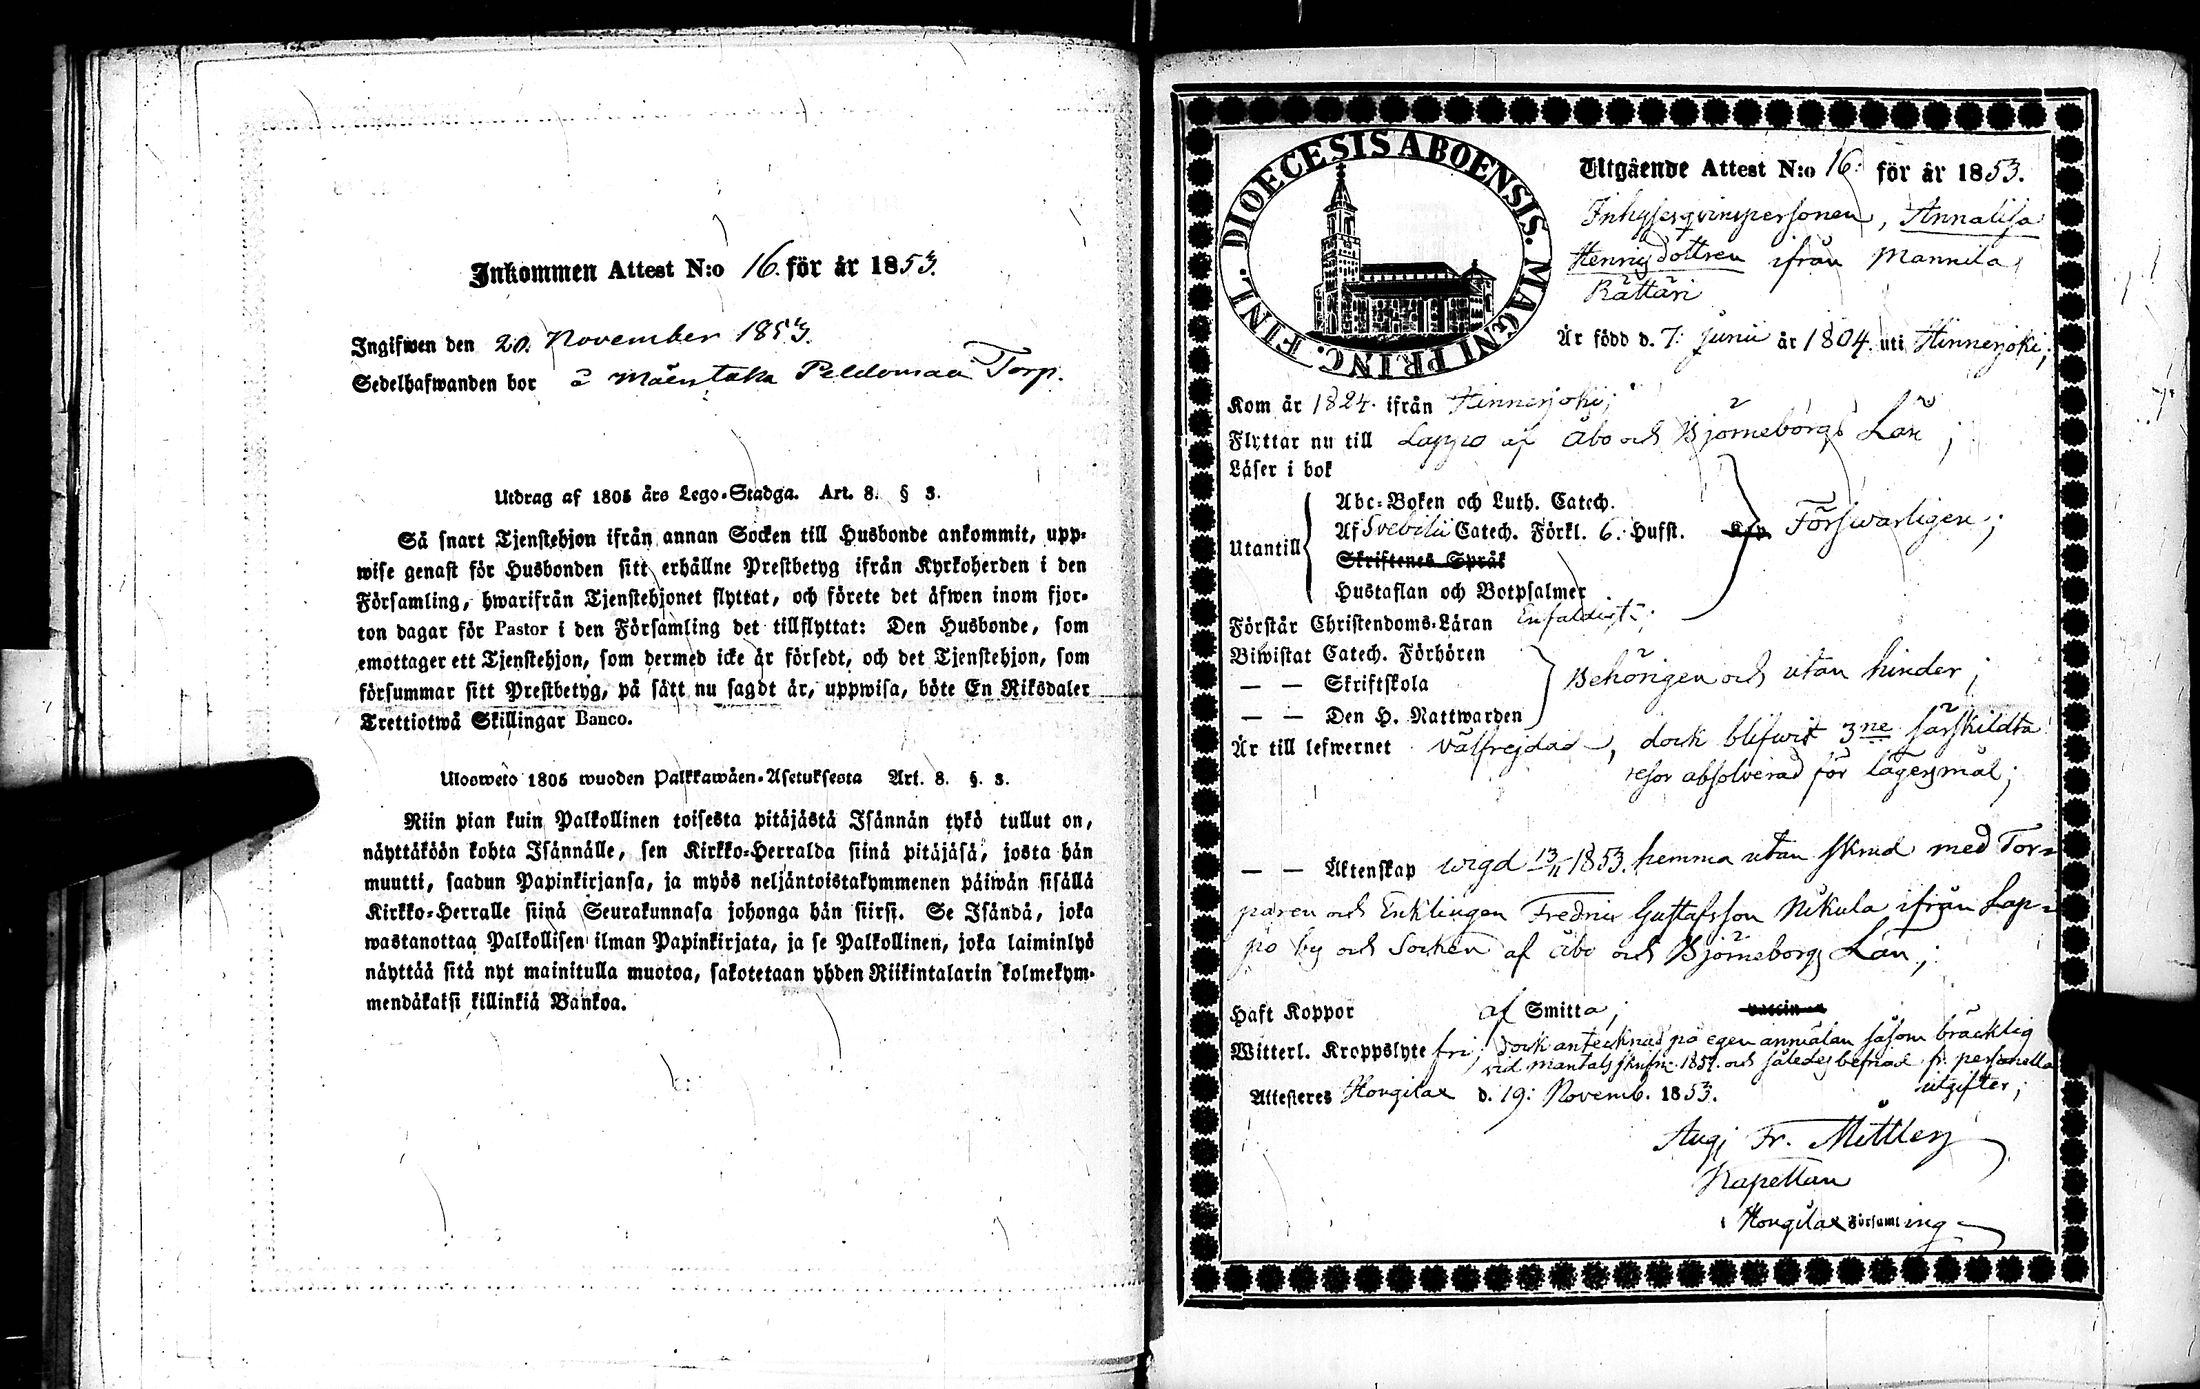 Inkommen Attest N:o 16. för år 1853.
Ingifwen den 20. November 1853.
Sedelhafwanden bor å Mäentaka Peldomaa Torp.
Utdrag af 1805 års Lego-Stadga. Art. 8. § 3.
Så snart Tjenstehjon ifrån annan Socken till Husbonde ankommit, upp-
wise genast för Husbonden sitt erhållne Prestbetyg ifrån Kyrkoherden i den
Församling, hwarifrån Tjenstehjonet flyttat, och förete det äfwen inom fjor-
ton dagar för Pastor i den Församling det tillflyttat: Den Husbonde, som
emottager ett Tjenstehjon, som dermed icke är försedt, och det Tjenstehjon, som
försummar sitt Prestbetyg, på sätt nu sagdt är, uppwisa, böte En Riksdaler
Trettiotwå Skillingar Banco.
Uloswето 1805 wuoden Palkkawäen-Asetuksesta Art. 8. §. 3.
Niin pian kuin Palkollinen toisesta pitäjästä Isännän tykö tullut on,
näyttäköön kohta Isännälle, sen Kirkko-Herralda siinä pitäjäsä, josta hän
muutti, saadun Papinkirjansa, ja myös neljäntoistakymmenen päiwän sisällä
Kirkko-Herralle siinä Seurakunnasa johonga hän siirsi. Se Isändä, joka
wastanottaa Palkollisen ilman Papinkirjata, ja se Palkollinen, joka laiminlyö
näyttää sitä nyt mainitulla muotoa, sakotetaan yhden Riikintalarin kolmekym-
mendäkaksi killinkiä Bankoa.
DIOECESIS ABOENSIS. MAGNI PRINC. FINL.
Utgående Attest N:o 16. för år 1853.
Inhysesqvinspersonen, Annalisa
Henrysdottren ifrån Mannila
Rättäri
Är född d. 7. Junii år 1804. uti Hinnerjoki;
Kom år 1824. ifrån Hinnerjoki;
Flyttar nu till Lappo af Åbo och Björneborgs Län;
Läser i bok
Abc-Boken och Luth. Catech.
Utantill Af Svebilii Catech. Förkl. 6. Hufst. Försvarligen;
Skriftenes Språk
Hustaflan och Botpsalmer
Förstår Christendoms-Läran Enfaldigt;
Biwistat Catech. Förhören
— — Skriftskola Behörigen och utan hinder;
— — Den H. Nattwarden
Är till lefwernet välfrejdad, dock blifwit 3ne särskildta
resor absolverad för lägersmål;
— — Äktenskap wigd 13/11 1853. hemma utan skrud med Tor-
paren och Enklingen Fredric Gustafsson Nikula ifrån Lap-
po by och Socken af Åbo och Björneborgs Län;
Haft Koppor af Smitta; vaccin
Witterl. Kroppslyte fri; dock antecknad på egen anmälan såsom bräcklig
vid mantalsskrifn. 1851. och således befriad fr. personella
utgifter;
Attesteres Hongilax d. 19. Novemb. 1853.
Aug. Fr. Mittler
Kapellan
i Hongilax Församling